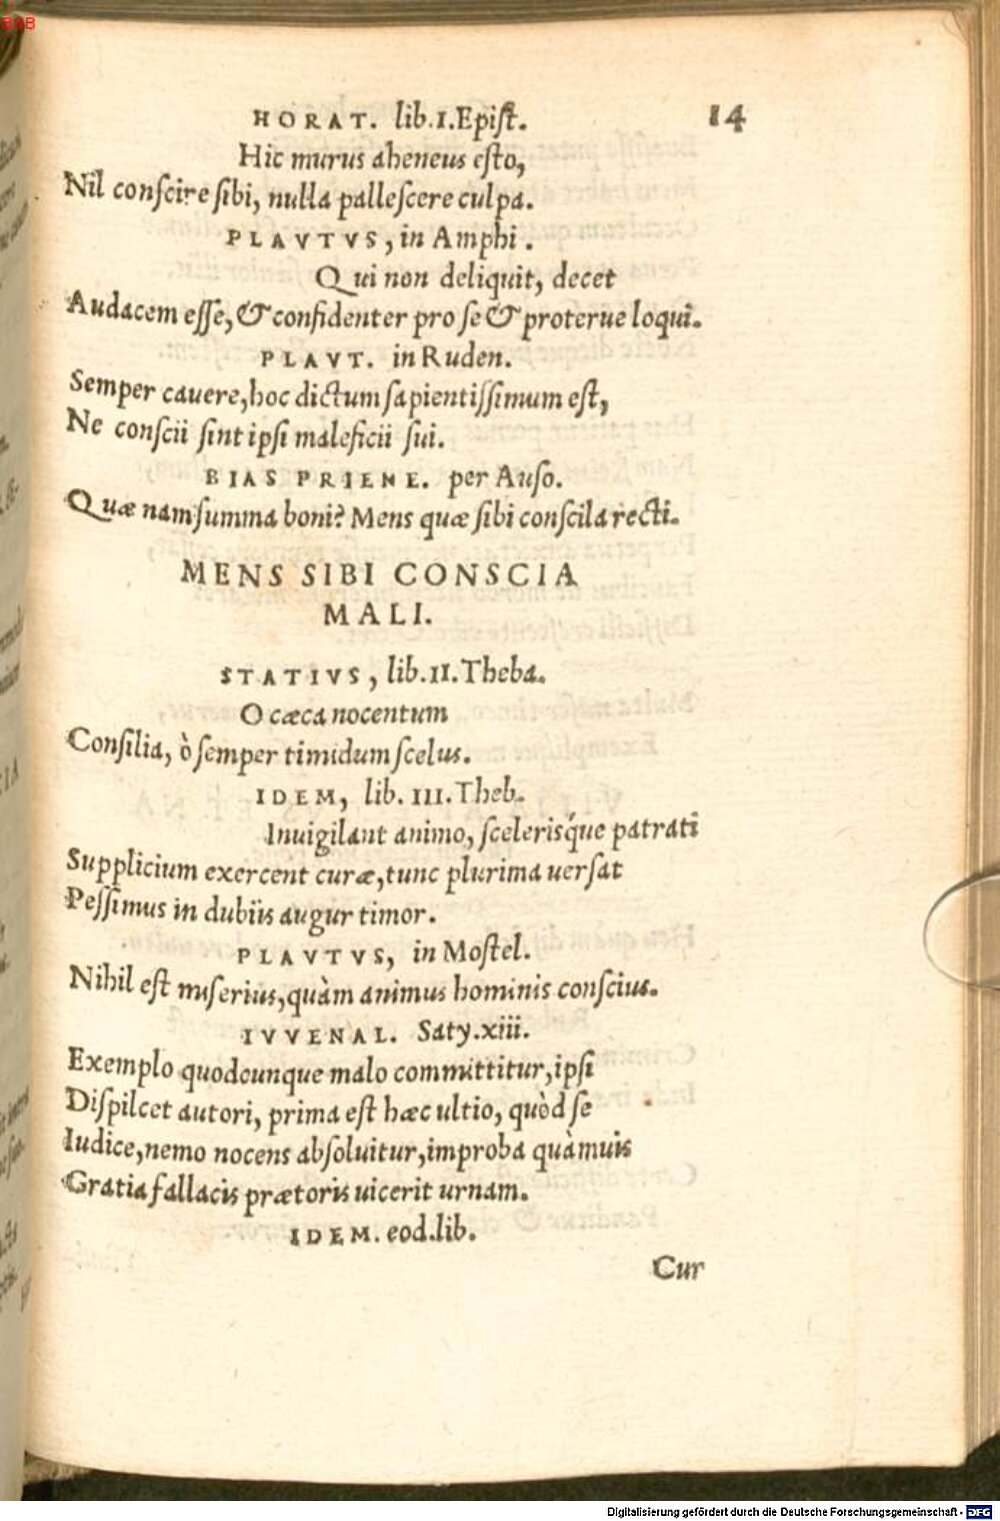 BSB
HORAT. lib.I.Epiſt. 14
Hic murus aheneus eſto,
Nil conſcire ſibi, nulla palleſcere culpa.
PLAVTVS, in Amphi.
Qui non deliquit, decet
Audacem eſſe, & confidenter pro ſe & proterue loqui.
PLAVT. in Ruden.
Semper cauere, hoc dictum ſapientiſſimum eſt,
Ne conſcii ſint ipſi maleficii ſui.
BIAS PRIENE. per Auſo.
Quæ nam ſumma boni? Mens quæ ſibi conſcila recti.
MENS SIBI CONSCIA
MALI.
STATIVS, lib.II.Theba.
O cæca nocentum
Conſilia, ò ſemper timidum ſcelus.
IDEM, lib. III. Theb.
Inuigilant animo, ſceleriśque patrati
Supplicium exercent curæ, tunc plurima uerſat
Peſſimus in dubiis augur timor.
PLAVTVS, in Moſtel.
Nihil eſt miſerius, quàm animus hominis conſcius.
IVVENAL. Saty.xiii.
Exemplo quodcunque malo committitur, ipſi
Diſpilcet autori, prima eſt hæc ultio, quòd ſe
Iudice, nemo nocens abſoluitur, improba quàmuis
Gratia fallacis prætoris uicerit urnam.
IDEM. eod.lib.
Cur
Digitalisierung gefördert durch die Deutsche Forschungsgemeinschaft - DFG